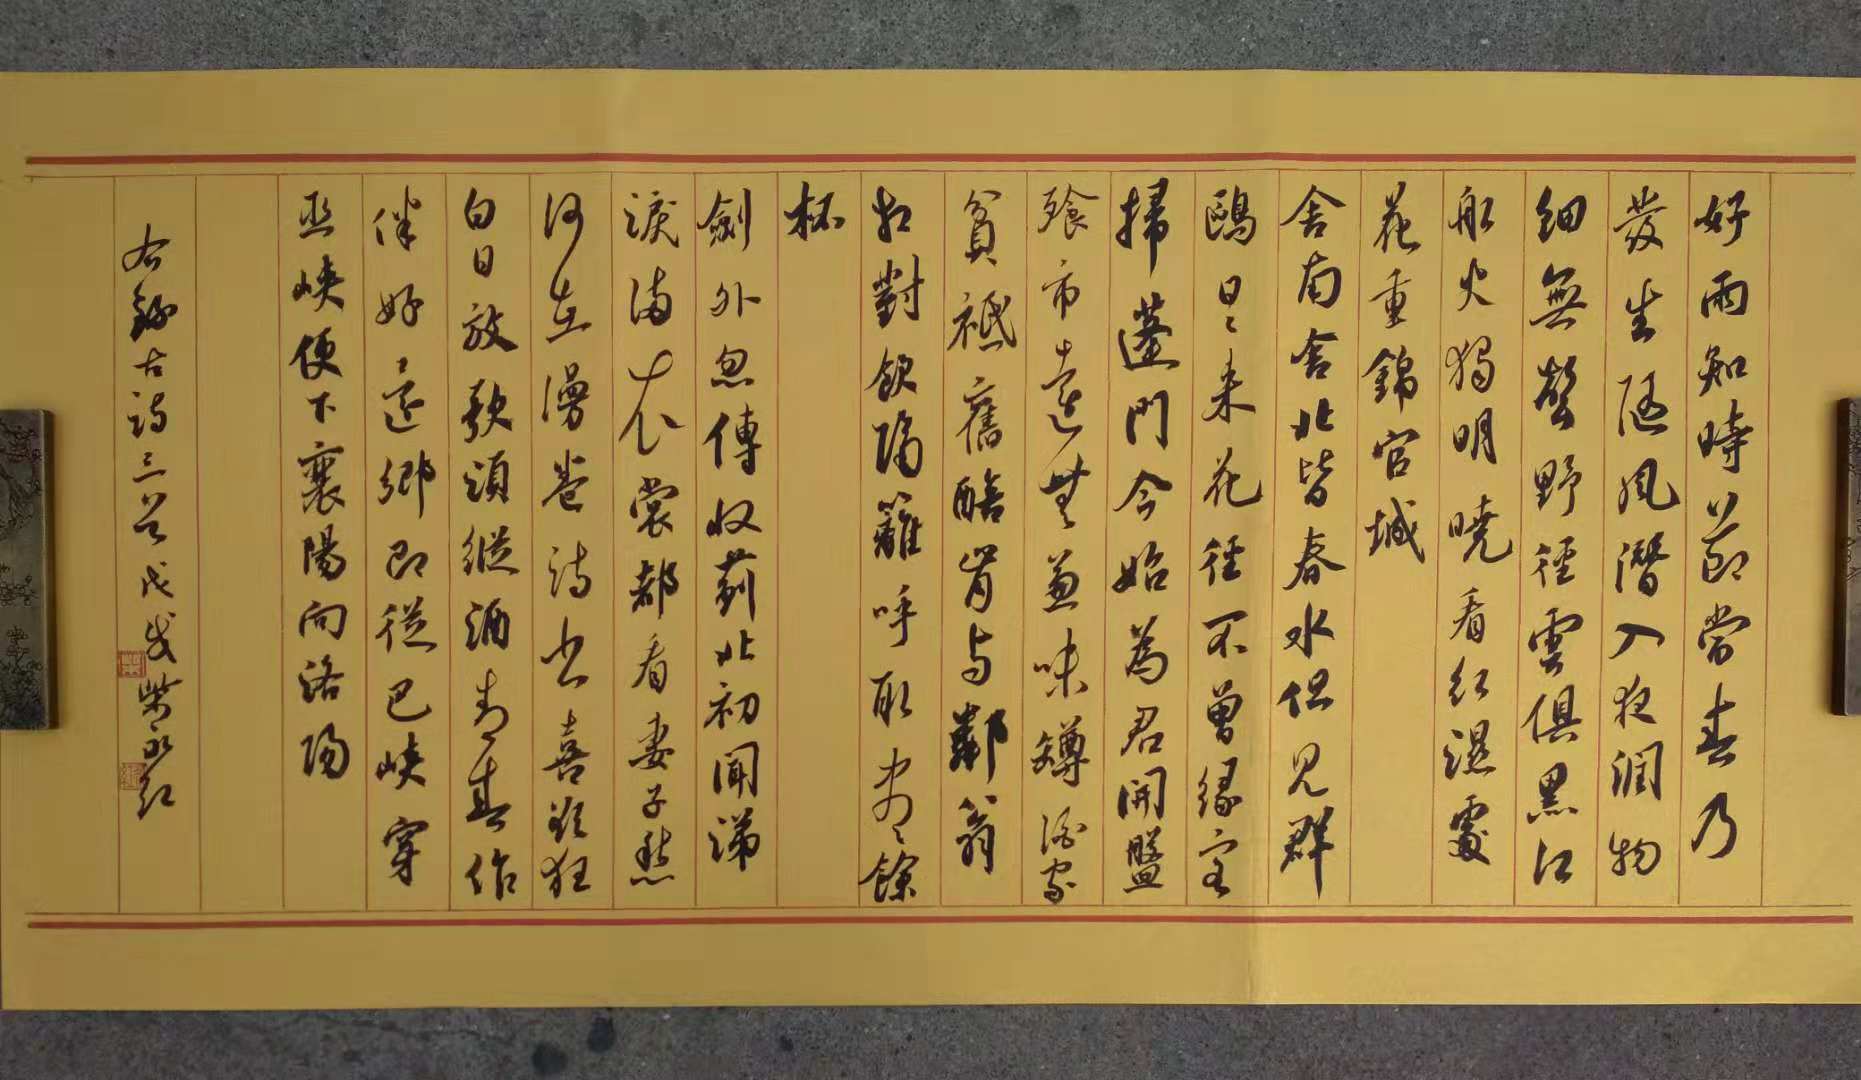 好雨知時節當春乃
發生隨風潛入夜潤物
細無聲野徑雲俱黑江
船火獨明曉看紅濕處
花重錦官城
舍南舍北皆春水但見群
鷗日〻來花徑不曾緣客
掃蓬門今始為君開盤
飱市遠無兼味罇酒家
貧祗舊醅肯与鄰翁
相對飲隔籬呼取尽餘
杯
劍外忽傳收薊北初聞涕
淚滿衣裳都看妻子愁
何在漫卷詩書喜欲狂
白日放歌須縱酒青春作
伴好還鄉即從巴峽穿
巫峽便下襄陽向洛陽
右錄古詩三首戊戌柴永紅